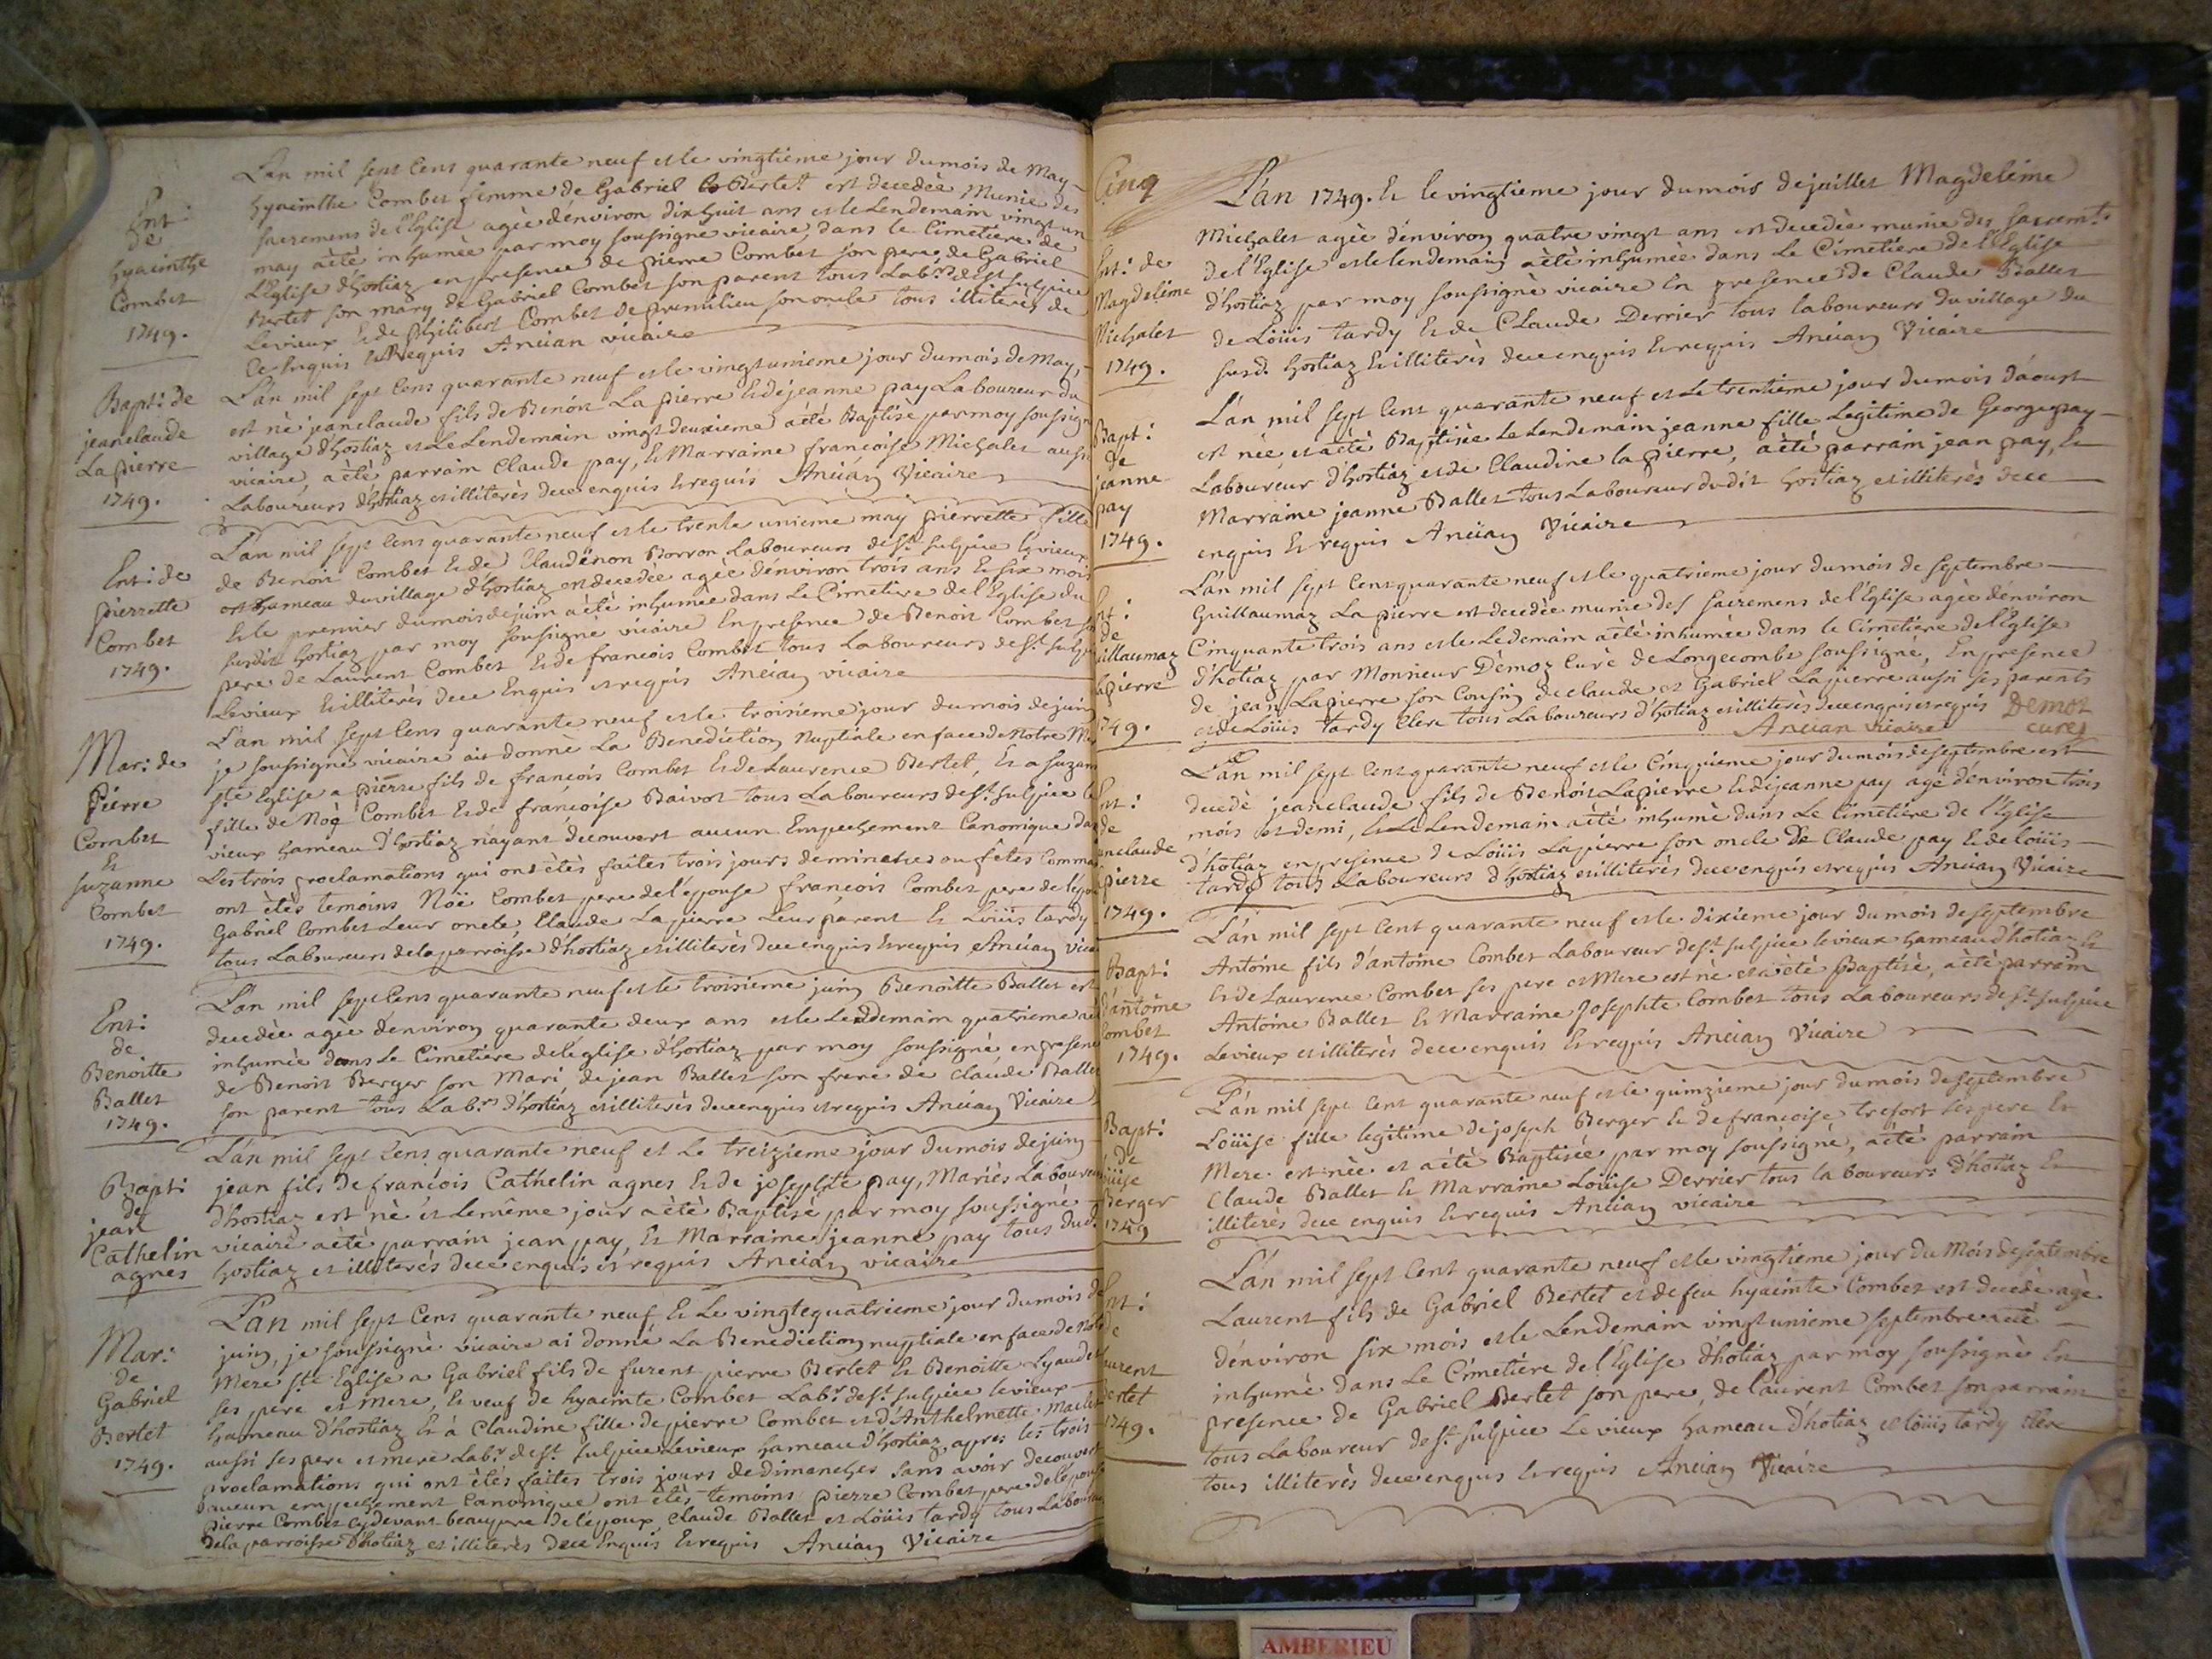 Ent:
de
hyacinthe
Combet
1749.
L'an mil sept cens quarante neuf et le vingtieme jour du mois de May
hyacinthe Combet femme de Gabriel Bertet est decedée Munie des
sacremens de l'Eglise agée d'environ dix huit ans et le Lendemain vingt un
may a èté inhumée par moy soussigné vicaire, dans le Cimetiere de
L'Eglise d'hostiaz en presence de pierre Combet son pere, de Gabriel
Bertet son mary de Gabriel Combet son parent tous Lab.rs de st sulpice
Levieux & de philibert Combet de premilieu son oncle tous illiterès de
ce Enquis & Requis Ancian vicaire
Bapt: de
jeanclaude
La pierre
1749.
L'an mil sept cens quarante neuf et le vingt unieme jour du mois de May,
est nè jeanclaude fils de Benoit La pierre & de jeanne pay Laboureur du
village d'hostiaz et Le Lendemain vingt deuxieme a èté Baptisè par moy soussigné
vicaire, a èté parrain Claude pay, & Marraine francoise Michalet aussi
Laboureurs d'hostiaz et illiterès de ce enquis & requis Ancian Vicaire
Ent: de
pierrette
Combet
1749.
L'an mil sept cens quarante neuf et le trente unieme may pierrette fille
de Benoit Combet & de Claudenon Borron Laboureurs de st sulpice levieux
hameau du village d'hostiaz est decedée agèe d'environ trois ans & six mois
& le premier du mois de juin a èté inhumèe dans Le Cimetiere de l'Eglise du
susdit hostiaz par moy soussigné vicaire En presence de Benoit Combet son
pere de Laurent Combet & de francois Combet tous Laboureurs de st. sulpice
Levieux & illiterès de ce Enquis et requis Ancian vicaire
Mar: de
Pierre
Combet
&
suzanne
Combet
1749.
L'an mil sept cens quarante neuf et le troisieme jour du mois de juin
je soussigné vicaire ait donnè La Benediction Nuptiale en face de Notre Mere
ste Eglise a pierre fils de françois Combet & de Laurence Bertet, & a suzanne
fille de Noè Combet & de françoise Baivot tous Laboureurs de st. sulpice le
vieux hameau d'hostiaz n'ayant decouvert aucun Empechement Canonique dans
Les trois proclamations qui ont étès faites trois jours de dimenches ou fêtes
ont étès temoins Noë Combet pere de l'epouse françois Combet pere de l'epoux
Gabriel Combet Leur oncle, Claude La pierre Leur parent & Loüis tardy
tous Laboureurs de la parroisse d'hostiaz et illiterès de ce enquis & requis Ancian vicaire
Ent:
de
Benoitte
Ballet
1749.
L'an mil sept Cens quarante neuf et le troisieme juin Benoitte Ballet est
decedèe agèe d'environ quarante deux ans et le Lendemain quatrieme a èté
inhumèe dans Le Cimetiere de l'Eglise d'hostiaz par moy soussigné, en presence
de Benoit Berger son Mari, de jean Ballet son frere de Claude Ballet
son parent tous Lab.rs d'hostiaz et illiterès de ce enquis et requis Ancian Vicaire
Bapt:
de
jean
Cathelin
agnes
L'an mil sept Cens quarante neuf et Le treizieme jour du mois de juin
jean fils de francois Cathelin agnes & de josephte pay, Mariès Laboureurs
d'hostiaz est nè et le même jour a èté Baptisé par moy soussigné
vicaire a èté parrain jean pay, & Marraine jeanne pay tous dud.
hostiaz et illiterès de ce enquis et requis Ancian vicaire
Mar:
de
Gabriel
Bertet
1749.
L'an mil sept Cens quarante neuf & Le vingt equatrieme jour du mois de
juin, je soussignè vicaire ai donné La Benediction nuptiale en face de Notre
Mere ste Eglise a Gabriel fils de furent pierre Bertet & Benoitte Lyaudet
ses pere et mere, & veuf de hyacinte Combet Lab.r de st. sulpice levieux
hameau d'hostiaz & à Claudine fille de pierre Combet et d'Anthelmette
aussi ses pere et mere Lab.r de st. sulpice Levieux hameau d'hostiaz, apres les trois
proclamations qui ont étès faites trois jours de dimanches sans avoir decouvert
aucun empechement Canonique ont étès temoins pierre Combet pere de l'epouse
pierre Combet cy devant beaupere de l'epoux, Claude Ballet et Loüis tardy tous Laboureurs
de la parroisse d'hotiaz et illiterès de ce Enquis & requis Ancian Vicaire
Cinq
Ent: de
Magdeleine
Michalet
1749.
L'an 1749. & le vingtieme jour du mois de juillet Magdeleine
Michalet agèe d'environ quatre vingt ans est decedèe munie des sacremts
de l'Eglise et le lendemain a èté inhumèe dans Le Cimetiere de l'Eglise
d'hostiaz par moy soussigné vicaire En presence de Claude Ballet
de Loüis tardy & de Claude Derrier tous laboureurs du village du
susd. hostiaz & illiterès de ce enquis & requis Ancian Vicaire
Bapt:
de
jeanne
pay
1749.
L'an mil sept Cens quarante neuf et Le trentieme jour du mois d'aoust
est nèe, et a èté Baptisèe Le Lendemain jeanne fille Legitime de George pay
Laboureur d'hostiaz et de Claudine la pierre, a èté parrain jean pay, &
Marraine jeanne Ballet tous Laboureur du dit hostiaz et illiterès de ce
enquis & requis Ancian Vicaire
Ent:
de
Guillaumaz
lapierre
1749.
L'an mil sept Cens quarante neuf et le quatrieme jour du mois de septembre
Guillaumaz La pierre est decedèe munie des sacremens de l'Eglise agèe d'environ
Cinquante trois ans et le Ledemain a èté inhumèe dans le Cimetiere de l'Eglise
d'hotiaz par Monsieur Dèmoz Curè de Longecombe soussigné, En presence
de jean Lapierre son Cousin de claude et Gabriel Lapierre aussi ses parents
et de Loüis tardy Clerc tous Laboureurs d'hotiaz et illiterès de ce enquis et requis Demoz
Ancian vicaire curé
Ent:
de
jeanclaude
lapierre
1749.
L'an mil sept Cens quarante neuf et le Cinquieme jour du mois de septembre est
decedè jeanclaude fils de Benoit Lapierre & de jeanne pay agé d'environ trois
mois et demi, & Le Lendemain a èté inhumè dans Le Cimetiere de l'Eglise
d'hotiaz en presence de Loüis Lapierre son oncle De Claude pay & de loüis
tardy tous Laboureurs d'hostiaz et illiterès de ce enquis et requis Ancian Vicaire
Bapt:
d'antoine
Combet
1749.
L'an mil sept Cent quarante neuf et le dixieme jour du mois de septembre
Antoine fils d'antoine Combet Laboureur de st. sulpice levieux hameau d'hotiaz &
& de Laurence Combet ses pere et Mere est nè et a èté Baptisè, a èté parrain
Antoine Ballet & Marraine Josephte Combet tous Laboureurs de st. sulpice
Levieux et illiterès de ce enquis & requis Ancian Vicaire
Bapt:
de
Loüise
Berger
1749
L'an mil sept Cent quarante neuf et le quinzieme jour du mois de septembre
Loüise fille legitime de joseph Berger & de francoise trefort ses pere &
Mere est nèe et a èté Baptisée par moy soussigné, a èté parrain
Claude Ballet & Marraine Loüise Derrier tous laboureurs d'hotiaz &
illiterès de ce enquis & requis Ancian vicaire
Ent:
de
Laurent
Bertet
1749.
L'an mil sept Cent quarante neuf et le vingtieme jour du Mois de septembre
Laurent fils de Gabriel Bertet et de feu hyacinte Combet est decedè agè
d'environ six mois et le Lendemain vingt unieme septembre a èté
inhumè dans Le Cimetiere de l'Eglise d'hotiaz par moy soussigné En
presence de Gabriel Bertet son pere, de Laurent Combet son parrain
tous Laboureur de st. sulpice Levieux hameau d'hotiaz et loüis tardy clerc
tous illiterès de ce enquis & requis Ancian Vicaire
AMBERIEU